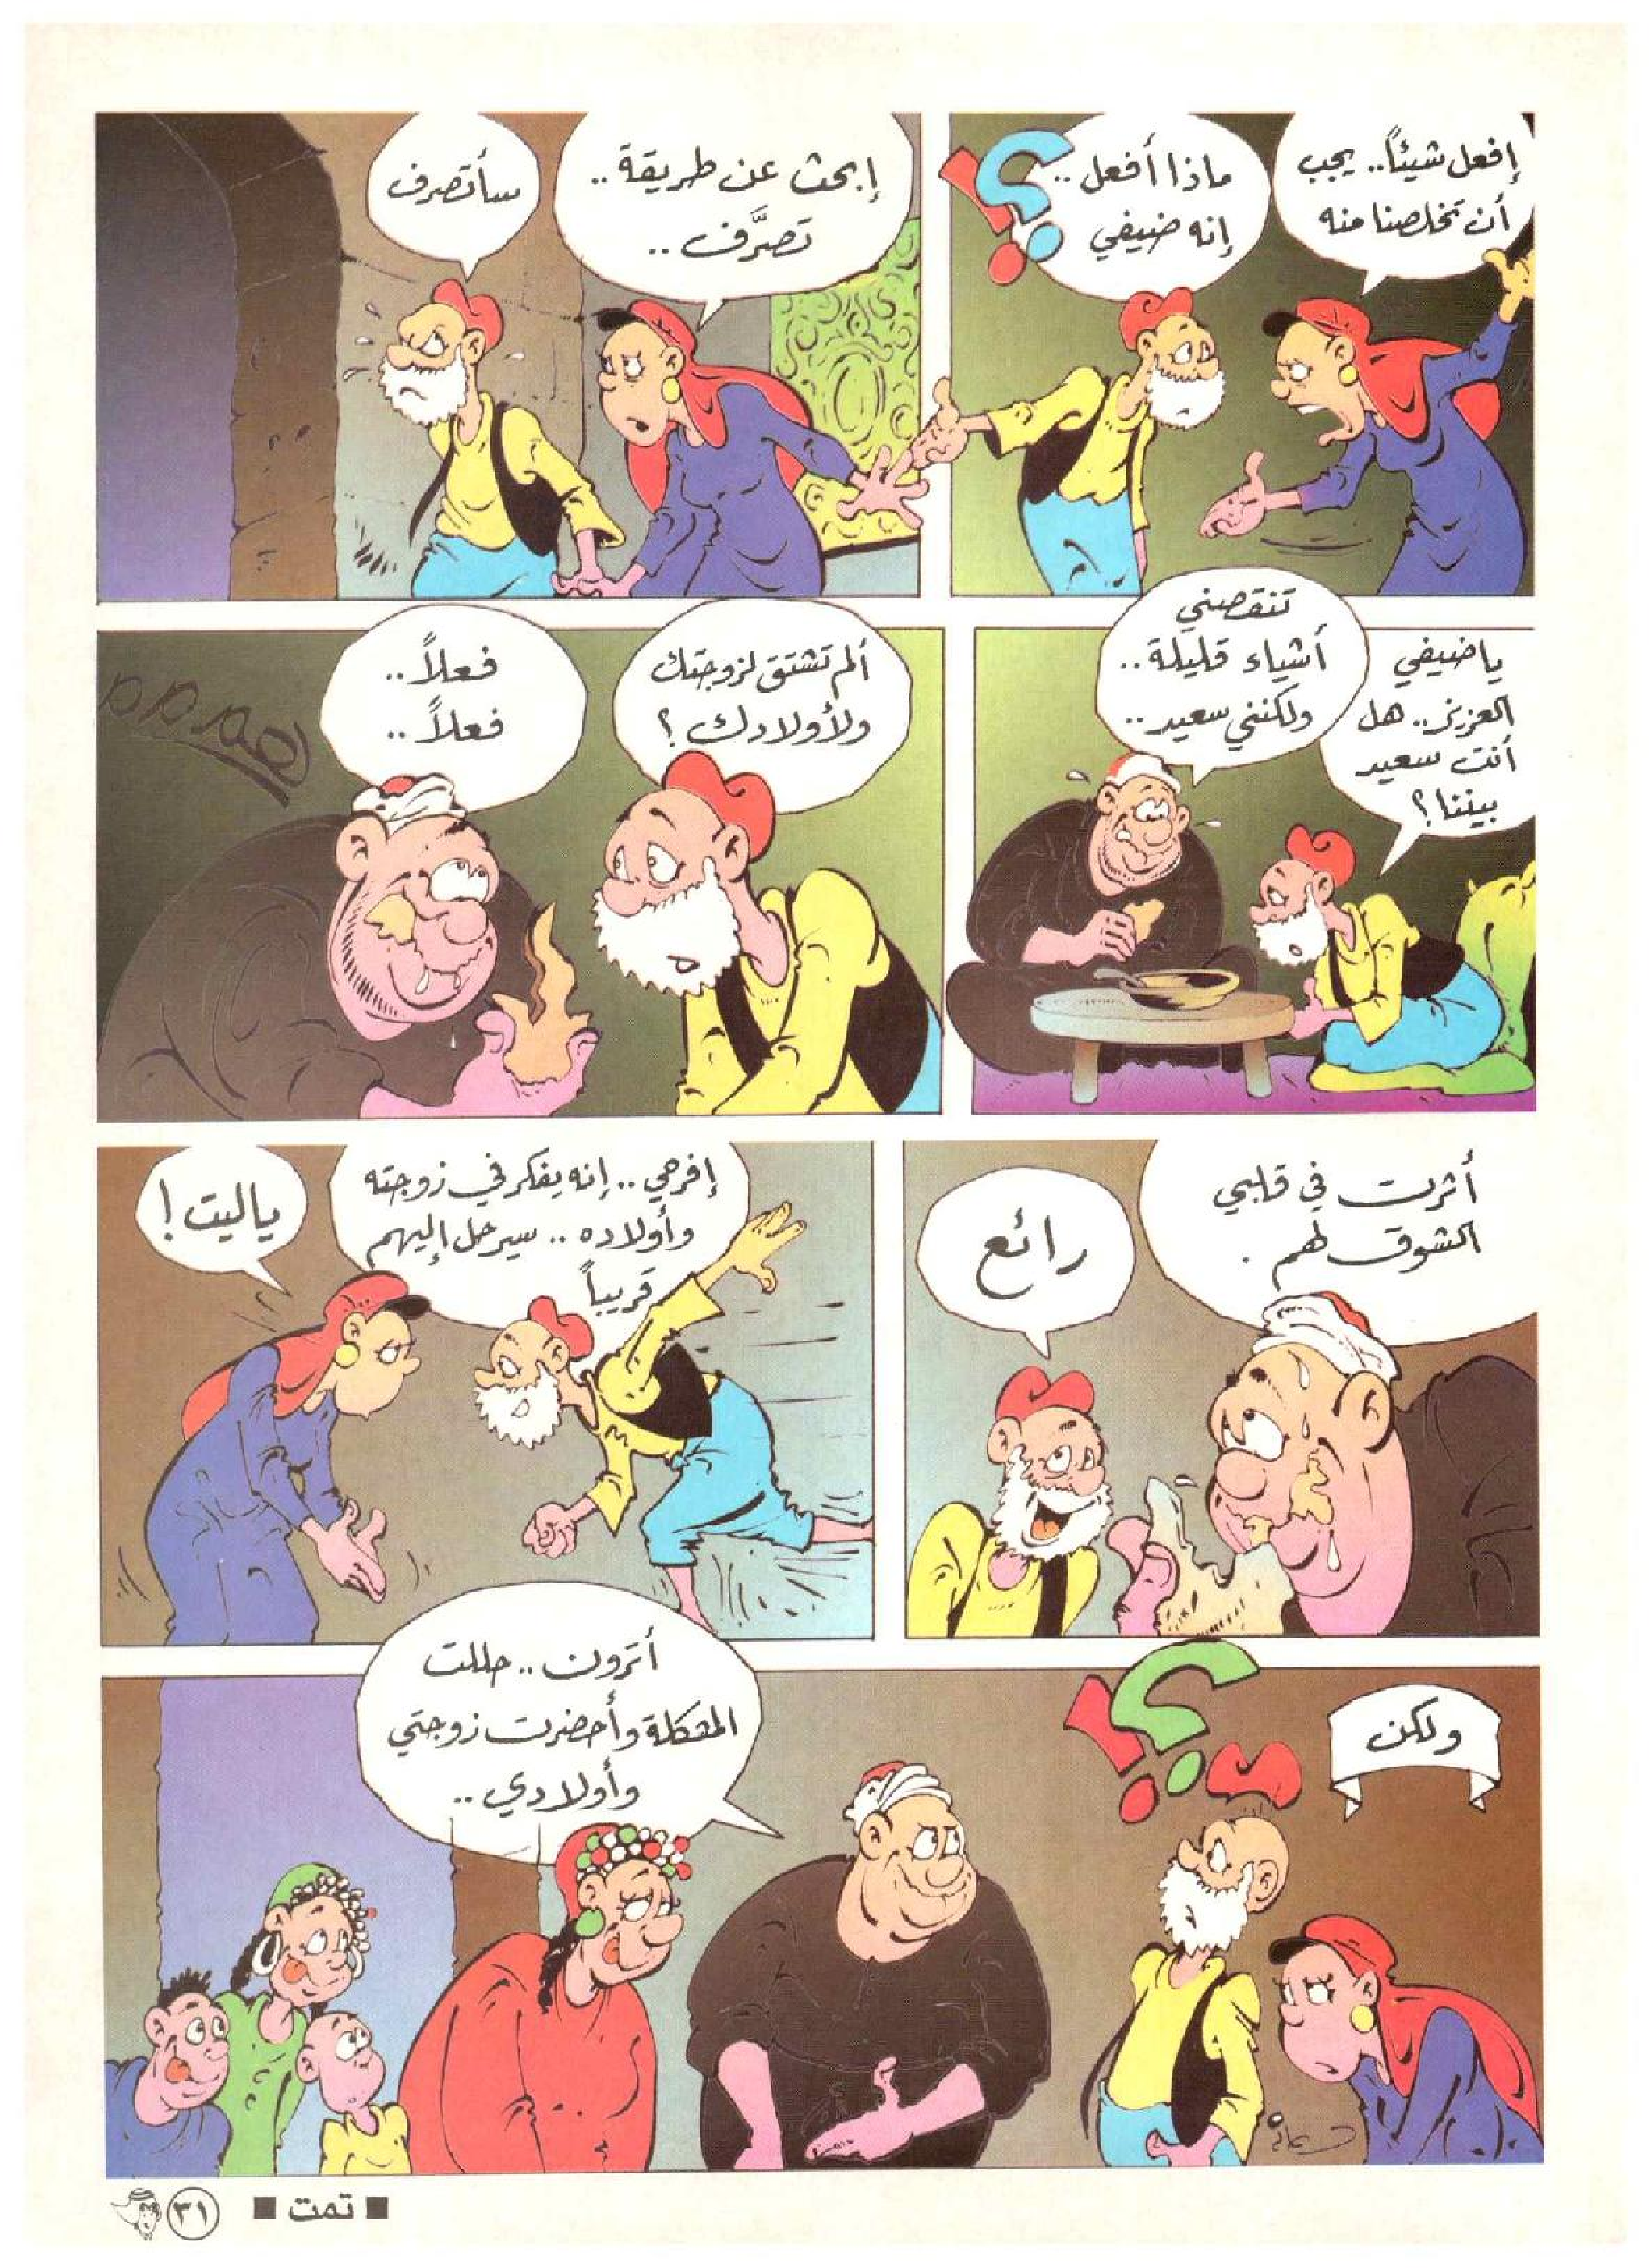 إفعل شيئاً.. يجب
أن تخلصنا منه
ماذا أفعل ..
إنه ضيفي
؟!
إبحث عن طريقة ..
تصرَّف ..
سأتصرف
يا ضيفي
العزيز.. هل
أنت سعيد
بيننا؟
تنقصني
أشياء قليلة ..
ولكنني سعيد ..
ألم تشتق لزوجتك
ولأولادك ؟
فعلاً ..
فعلاً ..
أثرت في قلبي
الشوق لهم .
رائع
إفرحي .. إنه يفكر في زوجته
وأولاده .. سيرحل إليهم
قريباً
ياليت !
ولكن
؟!
أترون .. حللت
المشكلة وأحضرت زوجتي
وأولادي ..
■ تمت ■
٣١